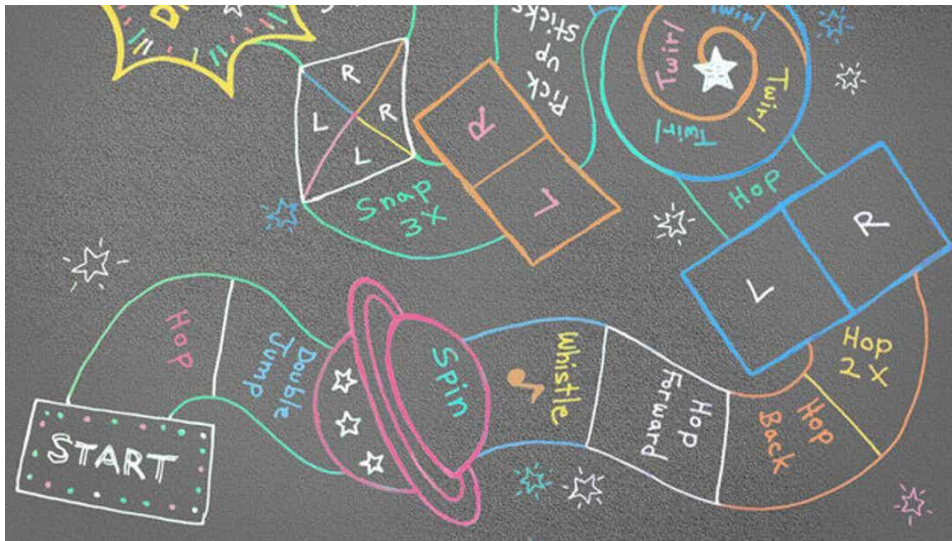 START
Hop
Double
Jump
Spin
Whistle
Hop
Forward
Hop
Back
Hop
2X
L
R
Hop
Twirl
Twirl
Twirl
Twirl
Pick
up
sticks
R
L
Snap
3X
L
L
R
R